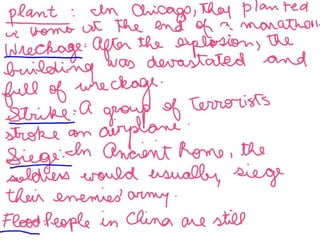 plant: In Chicago, they planted
a bomb at the end of a marathon.
Wreckage: After the explosion, the
building was devastated and
full of wreckage.
Strike: A group of Terrorists
stroke an airplane.
Siege: In Ancient Rome, the
soldiers would usually siege
their enemies' army.
Flood: People in China are still